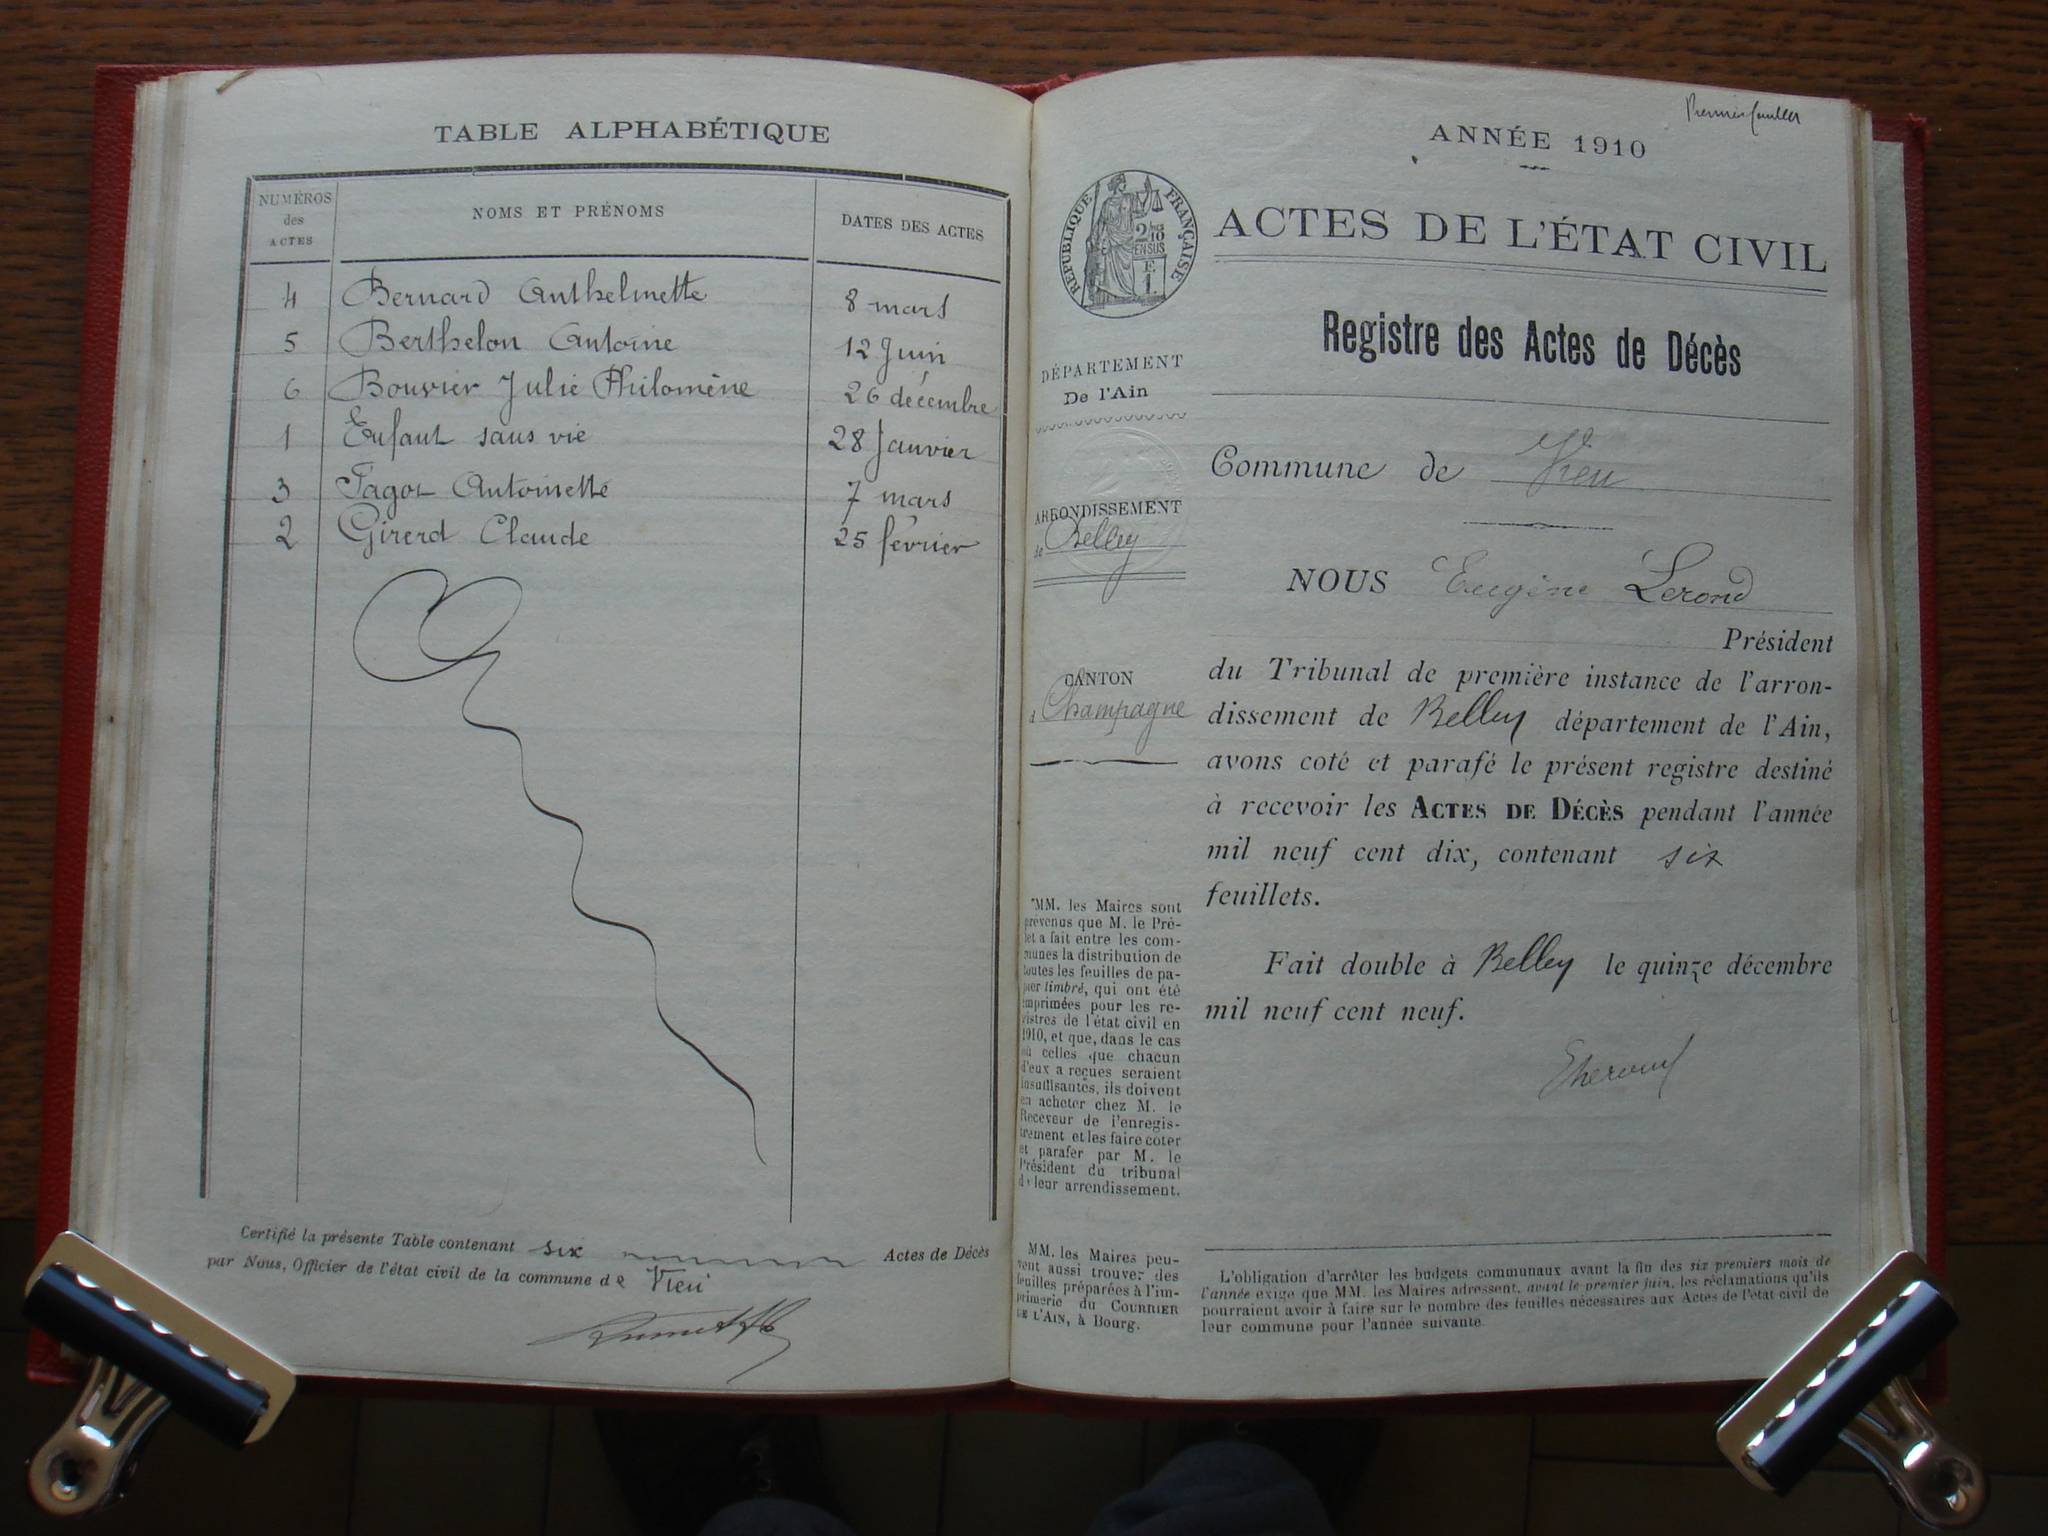 TABLE ALPHABÉTIQUE
NUMÉROS des ACTES NOMS ET PRÉNOMS DATES DES ACTES
4 Bernard Anthelmette 8 mars
5 Berthelon Antoine 12 Juin
6 Bouvier Julie Philomène 26 décembre
1 Enfant sans vie 28 Janvier
3 Fagot Antoinette 7 mars
2 Girerd Claude 25 février
Certifié la présente Table contenant six Actes de Décès
par Nous, Officier de l'état civil de la commune de Vieu
Premier feuillet
ANNÉE 1910
RÉPUBLIQUE FRANÇAISE
2/10 EN SUS
E
1.
ACTES DE L'ÉTAT CIVIL
Registre des Actes de Décès
DÉPARTEMENT
De l'Ain
ARRONDISSEMENT
de Belley
CANTON
d Champagne
"MM. les Maires sont
prévenus que M. le Pré-
fet a fait entre les com-
munes la distribution de
toutes les feuilles de pa-
pier timbré, qui ont été
imprimées pour les re-
gistres de l'état civil en
1910, et que, dans le cas
où celles que chacun
d'eux a reçues seraient
insuffisantes, ils doivent
en acheter chez M. le
Receveur de l'enregis-
trement et les faire coter
et parafer par M. le
Président du tribunal
de leur arrondissement.
MM. les Maires peu-
vent aussi trouver des
feuilles préparées à l'im-
primerie du COURRIER
DE L'AIN, à Bourg.
Commune de Vieu
NOUS Eugène Lerond
Président
du Tribunal de première instance de l'arron-
dissement de Belley département de l'Ain,
avons coté et parafé le présent registre destiné
à recevoir les ACTES DE DÉCÈS pendant l'année
mil neuf cent dix, contenant six
feuillets.
Fait double à Belley le quinze décembre
mil neuf cent neuf.
L'obligation d'arrêter les budgets communaux avant la fin des six premiers mois de
l'année exige que MM. les Maires adressent, avant le premier juin, les réclamations qu'ils
pourraient avoir à faire sur le nombre des feuilles nécessaires aux Actes de l'état civil de
leur commune pour l'année suivante.